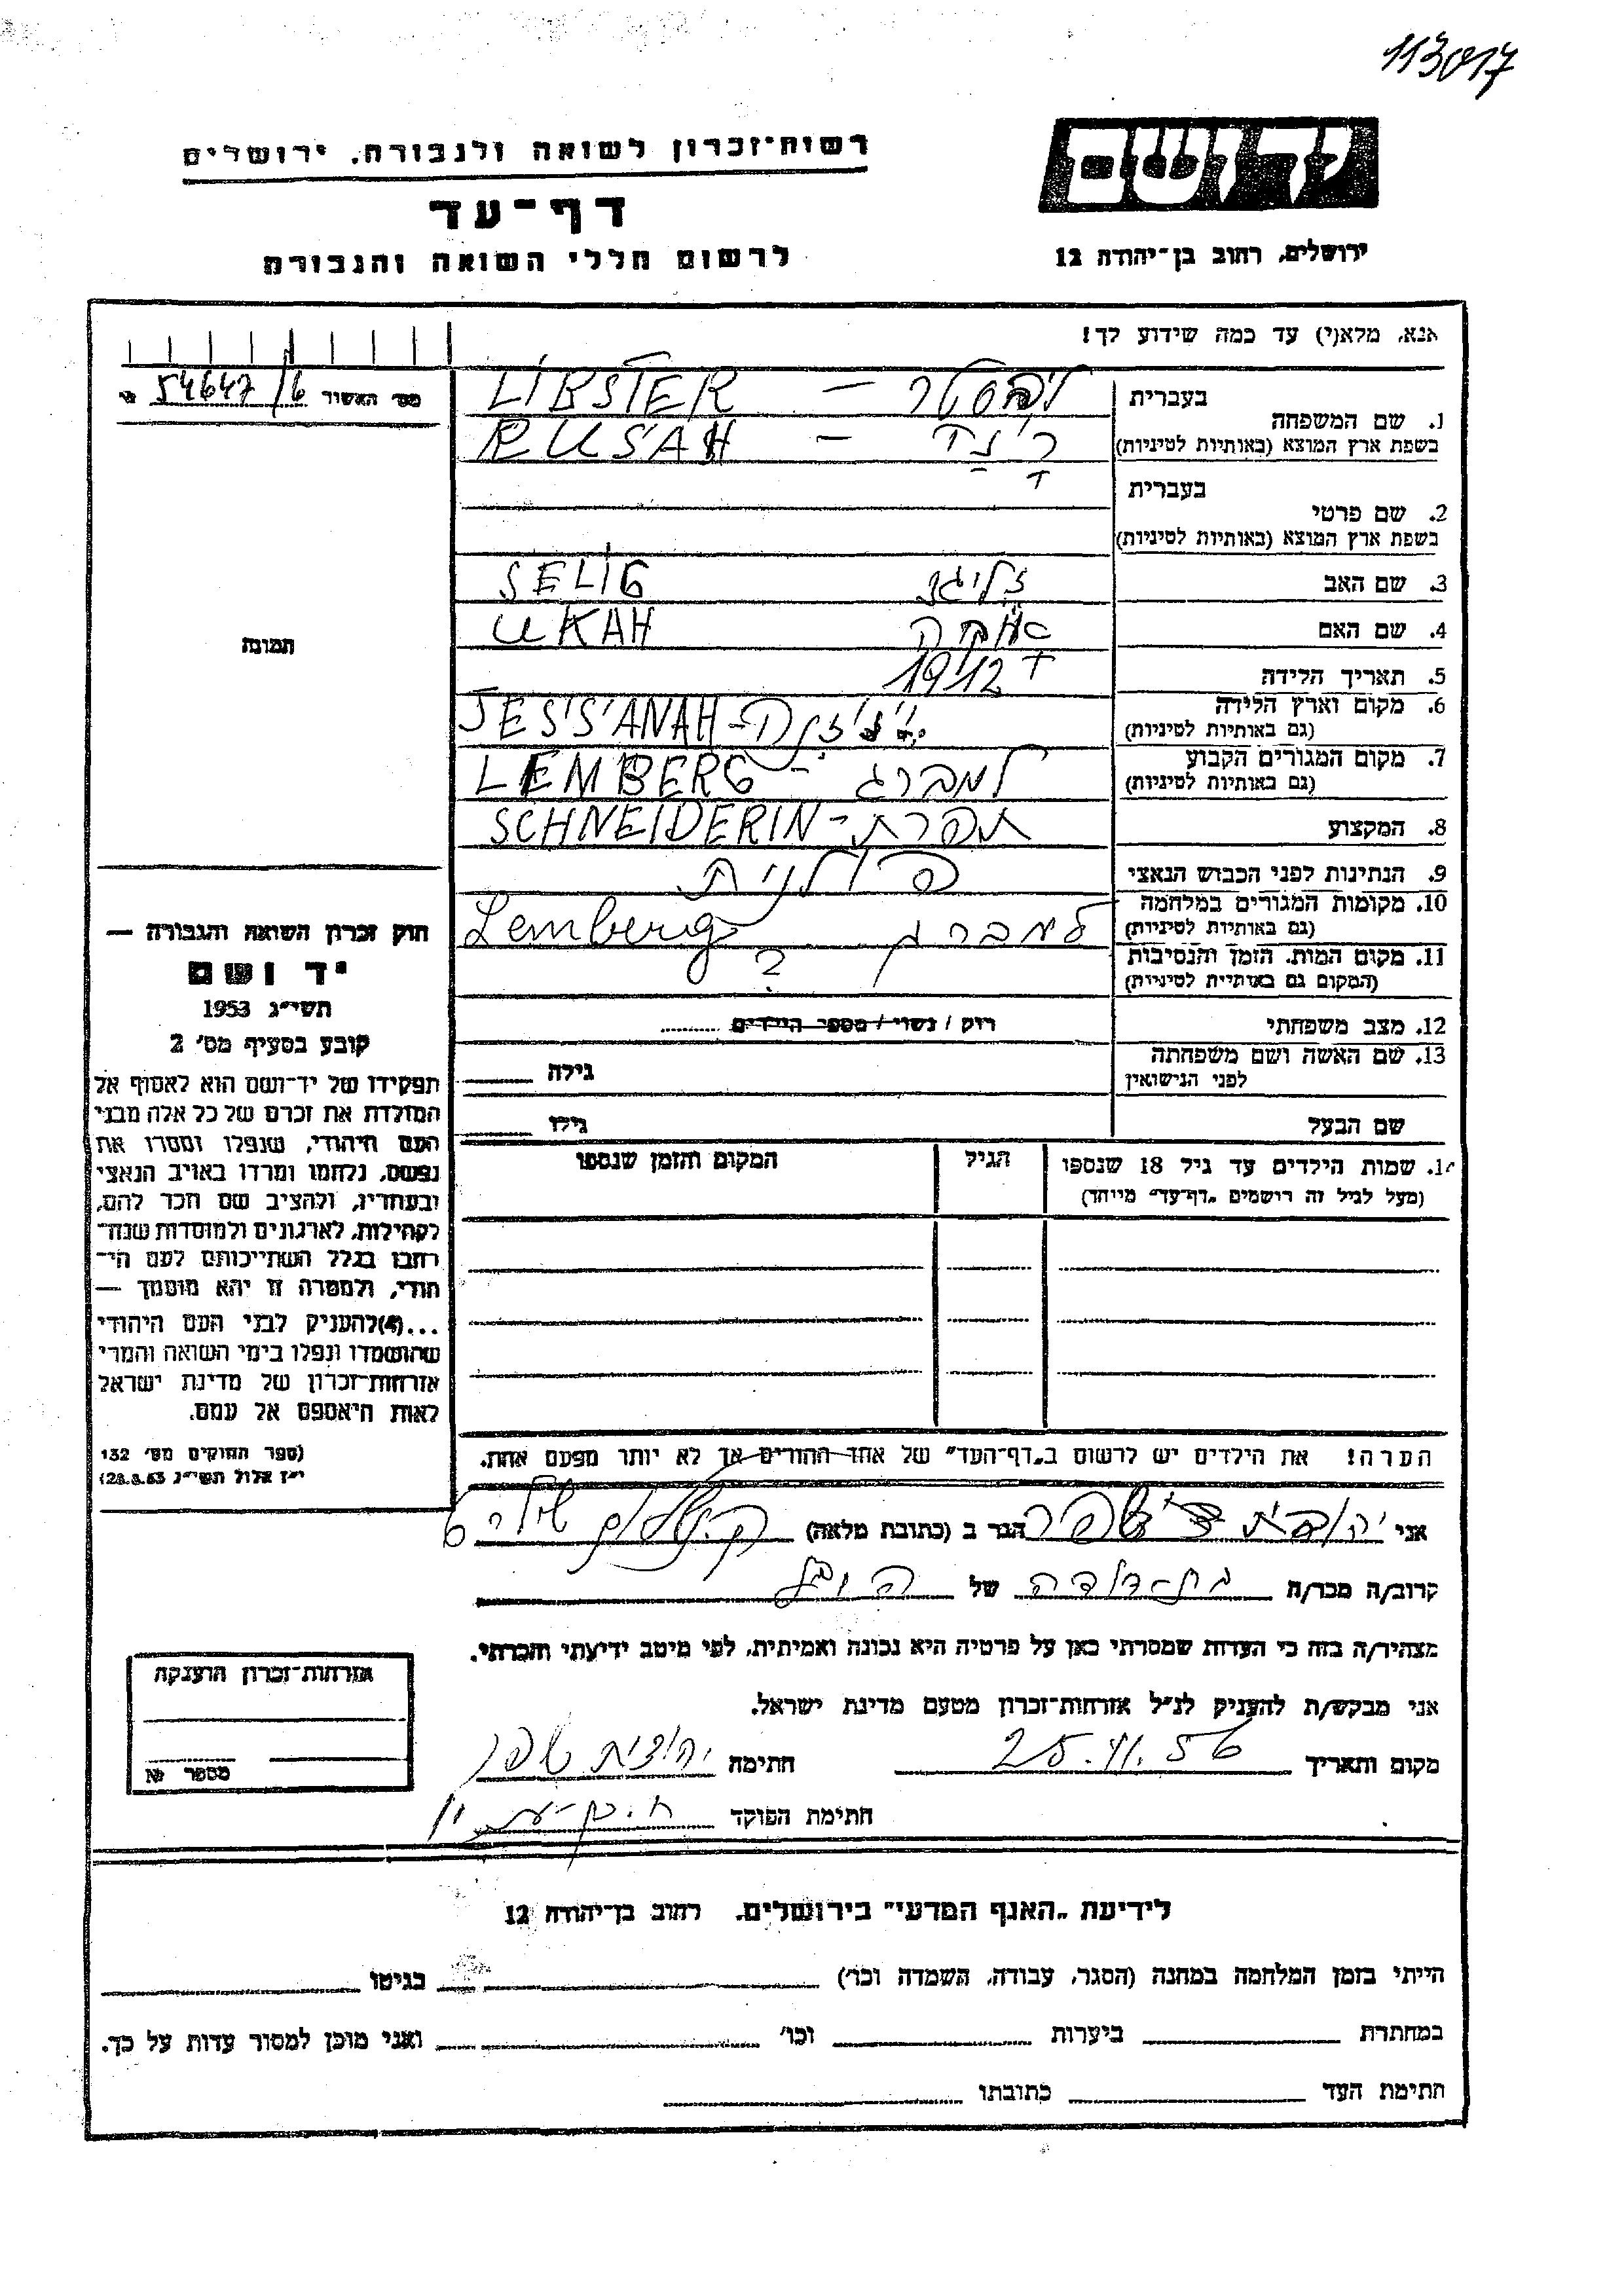 113017
רשות־זכרון לשואה ולגבורה, ירושלים
דף־עד
לרשום חללי השואה והגבורה
יד ושם
ירושלים, רחוב בן־יהודה 12
אנא, מלא(י) עד כמה שידוע לך!
מס׳ האשור 54647/6
1. שם המשפחה
בעברית
בשפת ארץ המוצא (באותיות לטיניות)
LIBSTER — ליבסטר
RUSAH —
2. שם פרטי
בעברית
בשפת ארץ המוצא (באותיות לטיניות)
3. שם האב
זליג SELIG
4. שם האם
UKAH
5. תאריך הלידה
1912
6. מקום וארץ הלידה
(גם באותיות לטיניות)
JES'S'ANAH -
7. מקום המגורים הקבוע
(גם באותיות לטיניות)
LEMBERG - למברג
8. המקצוע
SCHNEIDERIN - תפרת
9. הנתינות לפני הכבוש הנאצי
פולנית
10. מקומות המגורים במלחמה
(גם באותיות לטיניות)
Lemberg למברג
11. מקום המות, הזמן והנסיבות
(המקום גם באותיות לטיניות)
?
12. מצב משפחתי
רוק / נשוי / מספר הילדים
13. שם האשה ושם משפחתה
לפני הנישואין
גילה
שם הבעל
גילו
14. שמות הילדים עד גיל 18 שנספו
(מעל לגיל זה רושמים „דף־עד״ מיוחד)
הגיל
המקום והזמן שנספו
תמונה
חוק זכרון השואה והגבורה —
יד ושם
תשי״ג 1953
קובע בסעיף מס׳ 2
תפקידו של יד־ושם הוא לאסוף אל
המולדת את זכרם של כל אלה מבני
העם היהודי, שנפלו ומסרו את
נפשם, נלחמו ומרדו באויב הנאצי
ובעוזריו, ולהציב שם וזכר להם,
לקהילות, לארגונים ולמוסדות שנח־
רבו בגלל השתייכותם לעם הי־
הודי, ולמטרה זו יהא מוסמך —
...(4) להעניק לבני העם היהודי
שהושמדו ונפלו בימי השואה והמרי
אזרחות־זכרון של מדינת ישראל
לאות היאספם אל עמם.
(ספר החוקים מס׳ 132
י״ז אלול תשי״ג 28.8.53)
הערה! את הילדים יש לרשום ב„דף־העד״ של אחד ההורים אך לא יותר מפעם אחת.
אני יהודית הגר ב (כתובת מלאה)
קרוב/ה מכר/ה בת־דודה של
מצהיר/ה בזה כי העדות שמסרתי כאן על פרטיה היא נכונה ואמיתית, לפי מיטב ידיעתי והכרתי.
אני מבקש/ת להעניק לנ״ל אזרחות־זכרון מטעם מדינת ישראל.
מקום ותאריך 25.11.56 חתימה יהודית
חתימת הפוקד
אזרחות־זכרון הוענקה
מספר №
לידיעת „האגף המדעי״ בירושלים, רחוב בן־יהודה 12
הייתי בזמן המלחמה במחנה (הסגר, עבודה, השמדה וכו׳) בגיטו
במחתרת ביערות וכו׳ ואני מוכן למסור עדות על כך.
חתימת העד כתובתו